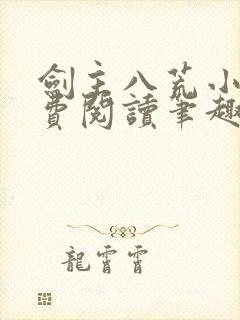 劍主八荒小
費閱讀筆趣
龍霄霄